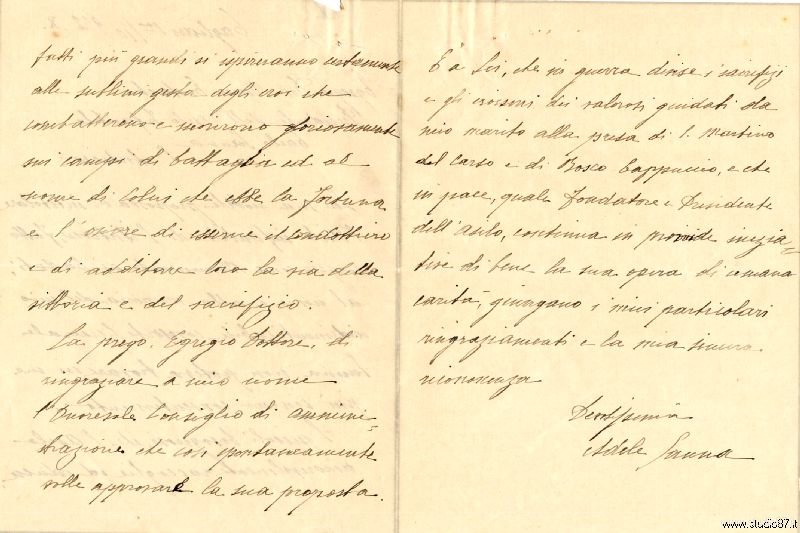 tutti più grandi si ispireranno certamente
alle sublimi gesta degli eroi che
combatterono e morirono gloriosamente
sui campi di battaglia ed al
nome di Colui che ebbe la fortuna
e l'onore di esserne il condottiero
e di additare loro la via della
vittoria e del sacrificio.
La prego, Egregio Dottore, di
ringraziare a mio nome
l'Onorevole Consiglio di ammini-
strazione che così spontaneamente
volle approvare la sua proposta.
E a Lei, che in guerra divise i sacrifizi
e gli eroismi dei valorosi guidati da
mio marito alla presa di S. Martino
del Carso e di Bosco Cappuccio, e che
in pace, quale Fondatore e Presidente
dell'Asilo, continua in provvide inizia=
tive di bene la sua opera di umana
carità, giungano i miei particolari
ringraziamenti e la mia sincera
riconoscenza
Devotissima
Adele Sanna
www.studio87.it